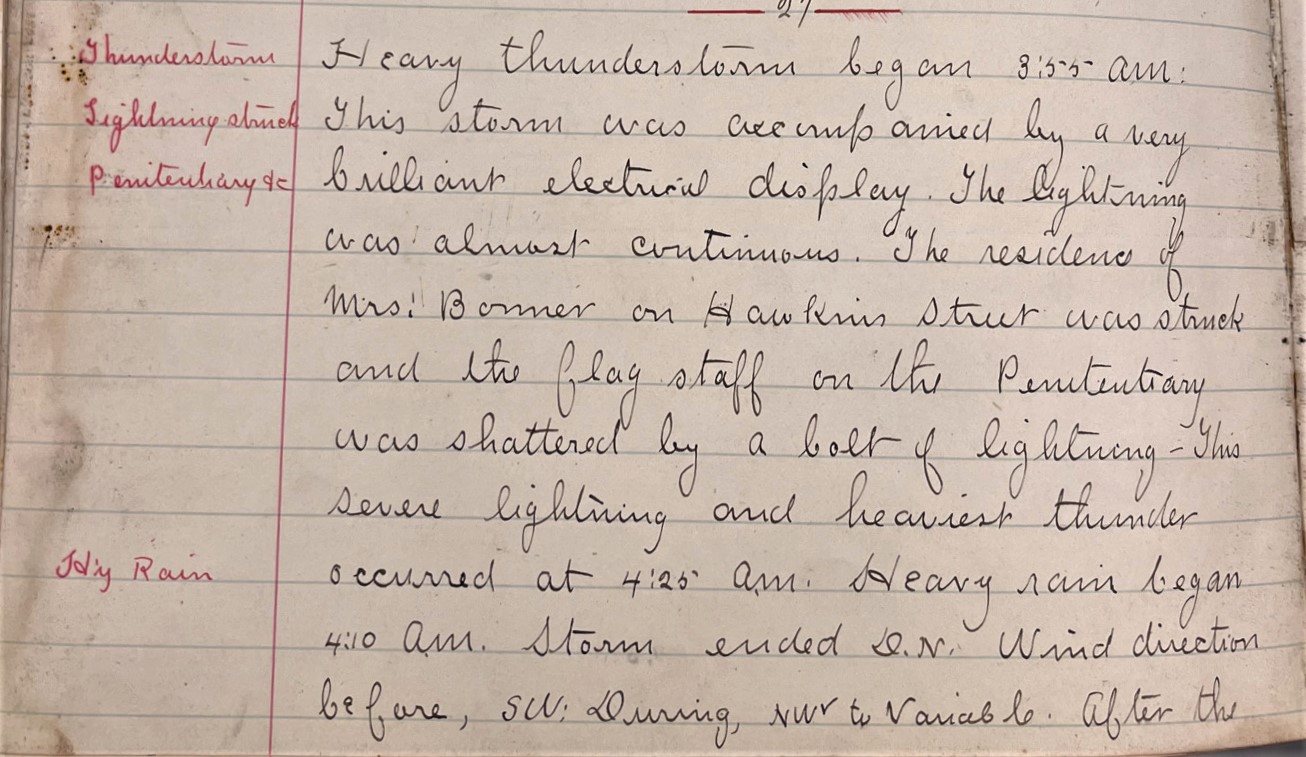 27
Thunderstorm
Lightning struck
Penitentiary &c
Heavy thunderstorm began 3:55 am:
This storm was accompanied by a very
brilliant electrical display. The lightning
was almost continuous. The residence of
Mrs. Bonner on Hawkins Street was struck
and the flag staff on the Penitentiary
was shattered by a bolt of lightning - This
severe lightning and heaviest thunder
Hvy Rain
occurred at 4:25 am. Heavy rain began
4:10 am. Storm ended D.N. Wind direction
before, SW: During, NW to Variable. After the